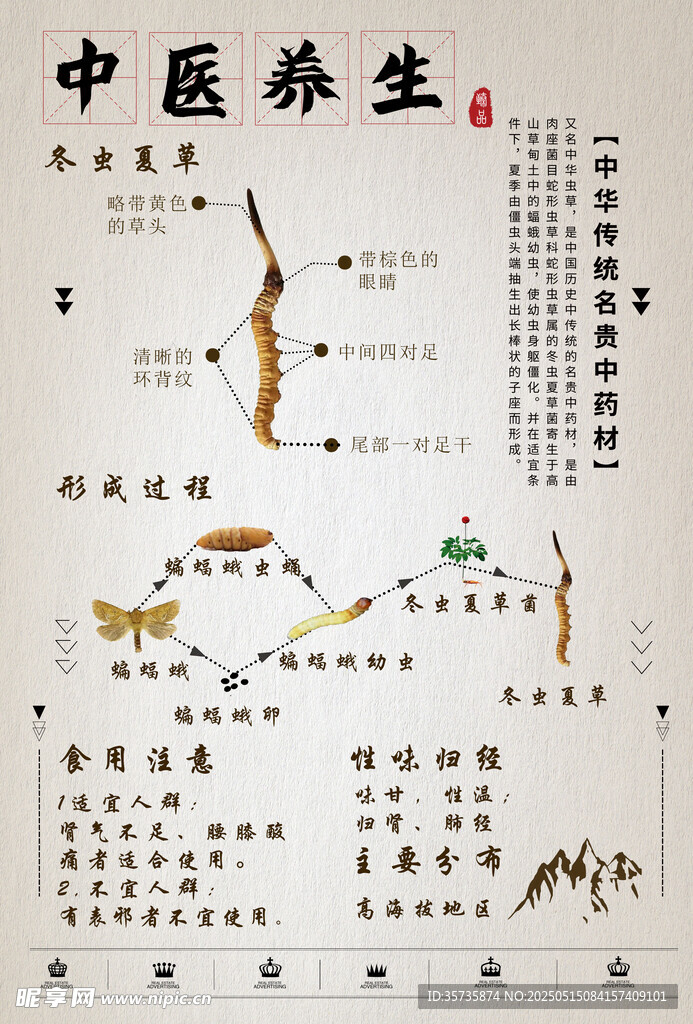 中医养生
臻品
冬虫夏草
略带黄色
的草头
带棕色的
眼睛
清晰的
环背纹
中间四对足
尾部一对足干
【中华传统名贵中药材】
又名中华虫草，是中国历史中传统的名贵中药材，是由
肉座菌目蛇形虫草科蛇形虫草属的冬虫夏草菌寄生于高
山草甸土中的蝠蛾幼虫，使幼虫身躯僵化。并在适宜条
件下，夏季由僵虫头端抽生出长棒状的子座而形成。
形成过程
蝙蝠蛾虫蛹
冬虫夏草菌
蝙蝠蛾
蝙蝠蛾幼虫
蝙蝠蛾卵
冬虫夏草
食用注意
1适宜人群；
肾气不足、腰膝酸
痛者适合使用。
2.不宜人群；
有表邪者不宜使用。
性味归经
味甘，性温；
归肾、肺经
主要分布
高海拔地区
REAL ESTATE
ADVERTISING
REAL ESTATE
ADVERTISING
REAL ESTATE
ADVERTISING
REAL ESTATE
ADVERTISING
REAL ESTATE
ADVERTISING
REAL ESTATE
ADVERTISING
昵享网 www.nipic.cn
ID:35735874 NO:20250515084157409101